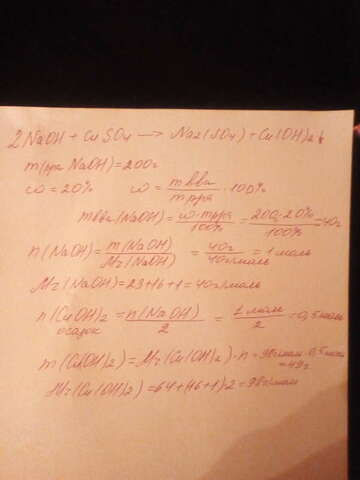 2NaOH + CuSO4 → Na2(SO4) + Cu(OH)2↓
m(р-ра NaOH) = 200г
ω = 20% ω = mвва / mрра · 100%
mвва(NaOH) = ω · mрра / 100% = 200 · 20% / 100% = 40г
n(NaOH) = m(NaOH) / Mr(NaOH) = 40г / 40г/моль = 1 моль
Mr(NaOH) = 23 + 16 + 1 = 40г/моль
n(Cu(OH)2 = n(NaOH) / 2 = 1 моль / 2 = 0,5 моль
осадок
m(Cu(OH)2) = Mr(Cu(OH)2) · n = 98г/моль · 0,5 моль
= 49г
Mr(Cu(OH)2) = 64 + (16 + 1) · 2 = 98г/моль